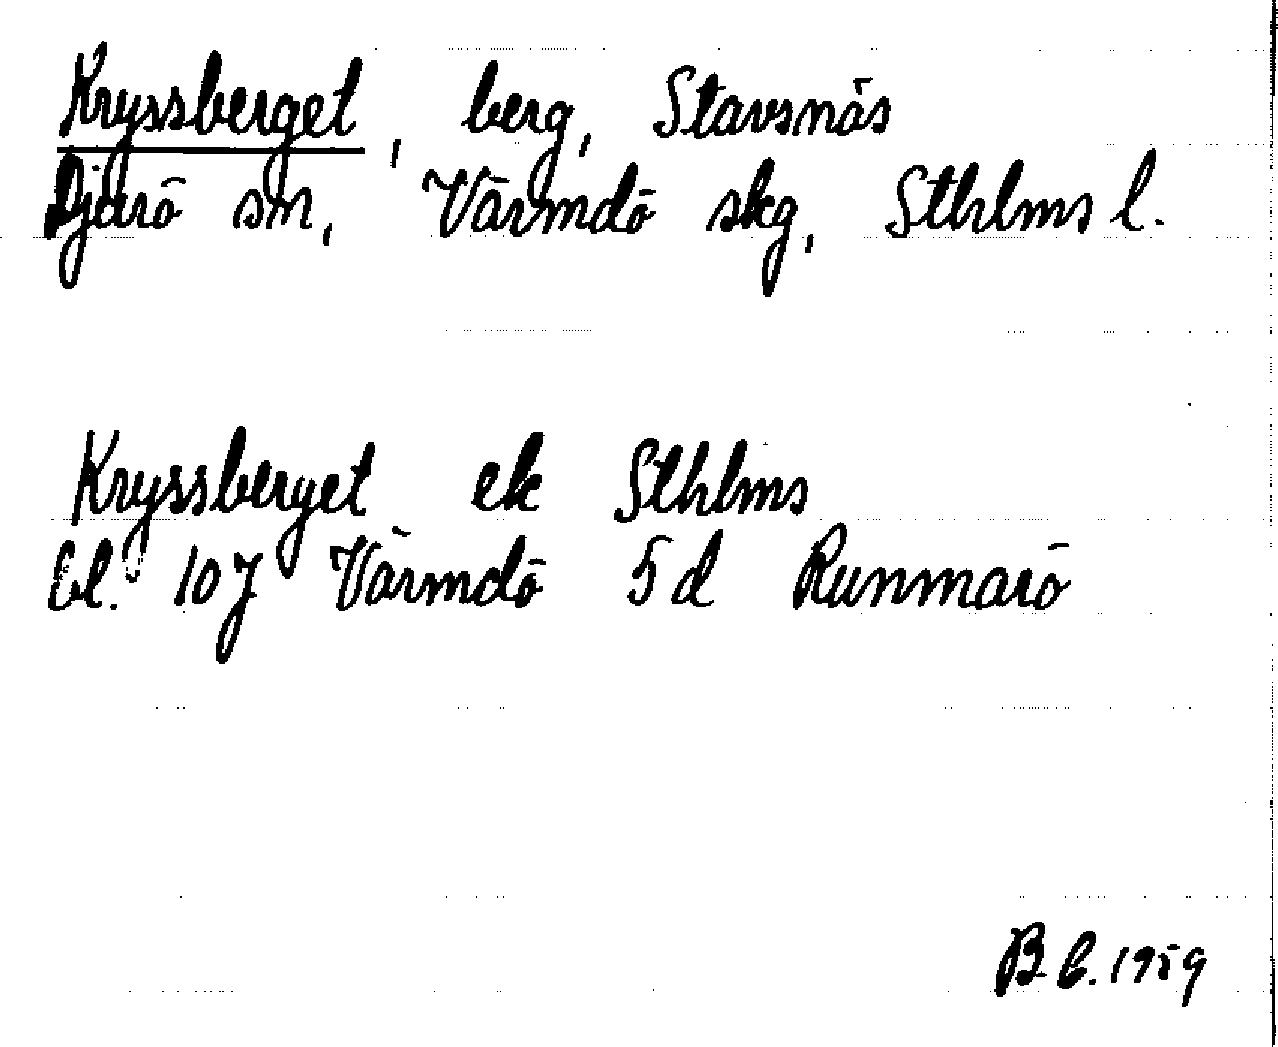 Kryssberget, berg, Stavsnäs
Djurö sn, Värmdö skg, Sthlms l.
Kryssberget ek Sthlms
bl. 107 Värmdö 5d Runmarö
B.b. 1959